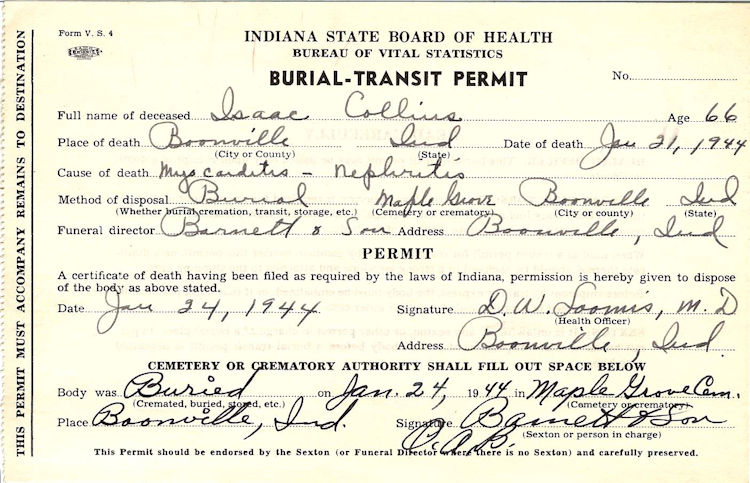 Form V. S. 4
INDIANA STATE BOARD OF HEALTH
BUREAU OF VITAL STATISTICS
BURIAL-TRANSIT PERMIT
No.
Full name of deceased Isaac Collins Age 66
Place of death Boonville Ind Date of death Jan 21, 1944
(City or County) (State)
Cause of death Myocarditis - Nephritis
Method of disposal Burial Maple Grove Boonville Ind
(Whether burial, cremation, transit, storage, etc.) (Cemetery or crematory) (City or county) (State)
Funeral director Barnett & Son Address Boonville, Ind
PERMIT
A certificate of death having been filed as required by the laws of Indiana, permission is hereby given to dispose
of the body as above stated.
Date Jan 24, 1944 Signature D. W. Loomis, M. D
(Health Officer)
Address Boonville, Ind.
CEMETERY OR CREMATORY AUTHORITY SHALL FILL OUT SPACE BELOW
Body was Buried on Jan. 24, 1944 in Maple Grove Cem.
(Cremated, buried, stored, etc.) (Cemetery or crematory)
Place Boonville, Ind. Signature Barnett & Son
(Sexton or person in charge)
This Permit should be endorsed by the Sexton (or Funeral Director where there is no Sexton) and carefully preserved.
THIS PERMIT MUST ACCOMPANY REMAINS TO DESTINATION